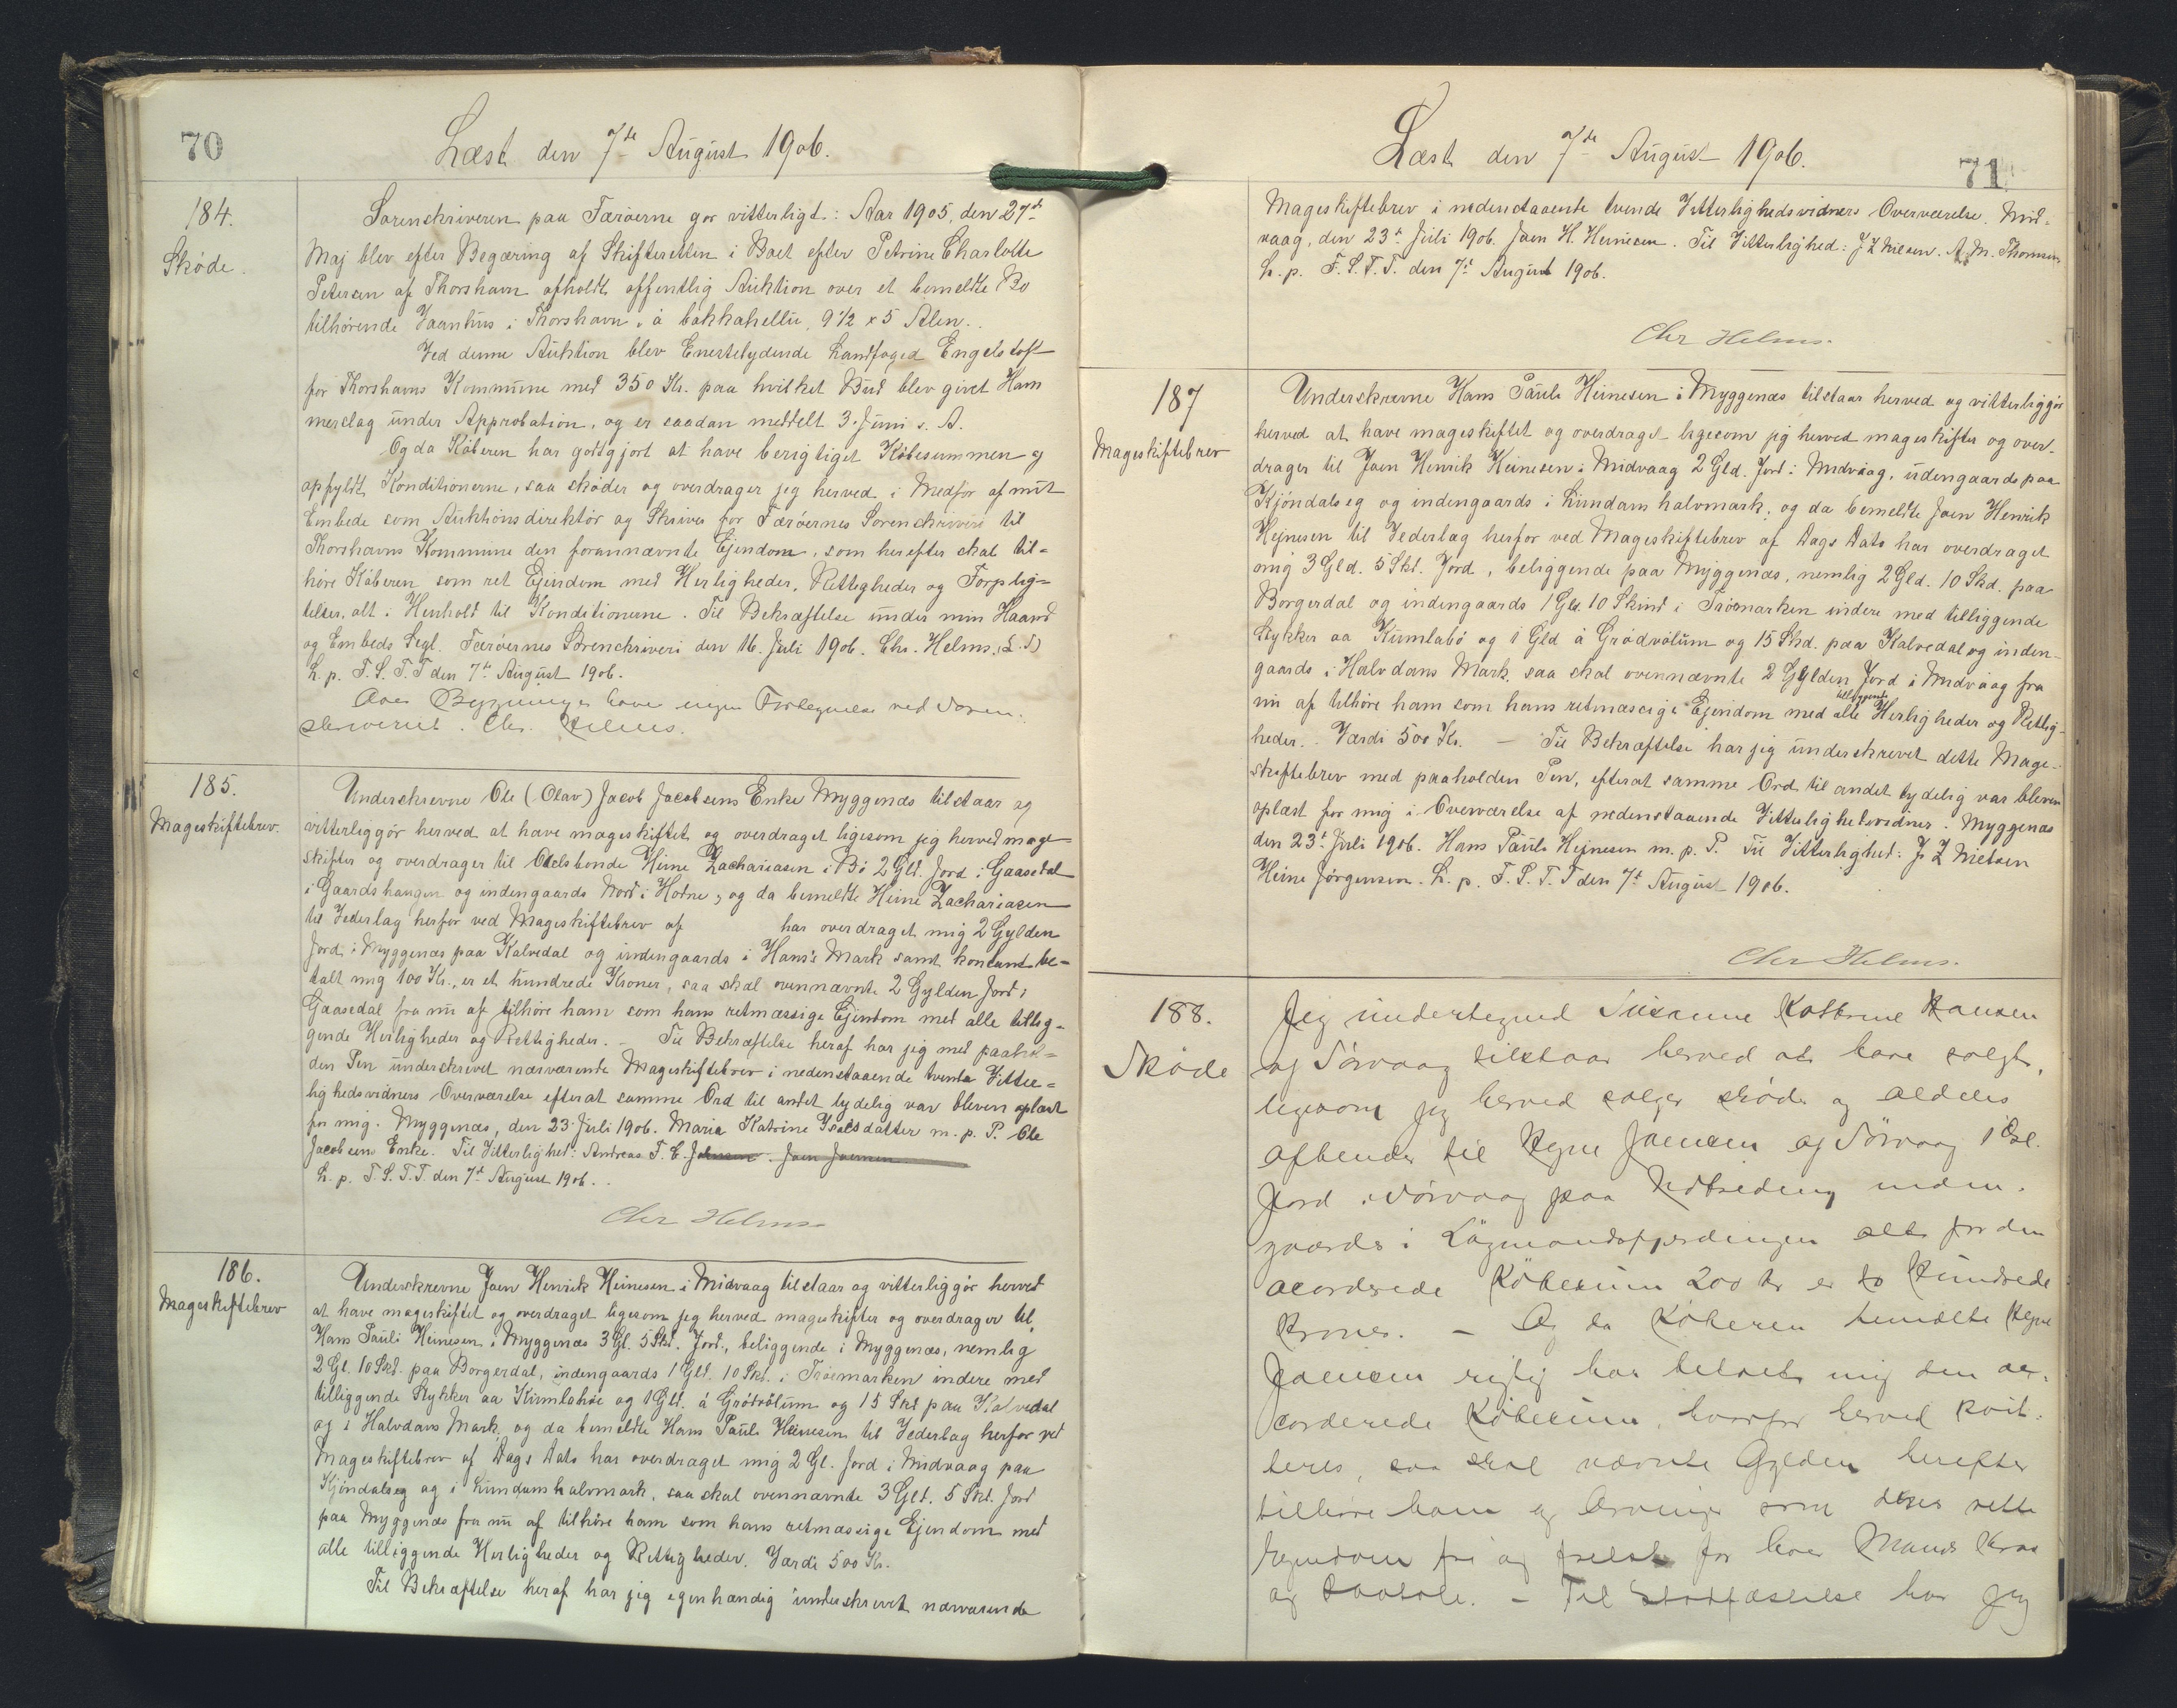 70
Læst den 7de August 1906.
184.
Skøde.
Sorenskriveren paa Færöerne gör vitterligt: Aar 1905, den 27de
Maj blev efter Begæring af Skifteretten i Boet efter Petrine Charlotte
Petersen af Thorshavn afholdt offentlig Auktion over et bemeldte Bo
tilhörende Vaanhus i Thorshavn, á bakkahellu, 9½ x 5 Alen.
Ved denne Auktion blev Enestelydende Landfoged Engelstoft
for Thorshavns Kommune med 350 Kr. paa hvilket Bud blev givet Ham
merslag under Approbation, og er saadan meddelt 3. Juni s. A.
Og da Köberen har godtgjort at have berigtiget Köbesummen og
opfyldt Konditionerne, saa sköder og overdrager jeg herved i Medför af mit
Embede som Auktionsdirektör og Skriver for Færöernes Sorenskriveri til
Thorshavns Kommune den forannævnte Ejendom, som herefter skal til=
höre Köberen som ret Ejendom med Herligheder, Rettigheder og Forplig=
telser, alt i Henhold til Konditionerne. Til Bekræftelse under min Haand
og Embeds Segl. Færöernes Sorenskriveri den 16. Juli 1906. Chr. Helms. (L.S)
L. p. F. S. T. T den 7de August 1906.
Bygninger have ingen ved Soren-
skriveriet. Chr. Helms.
185.
Mageskiftebrev.
Underskrevne Ole (Olav) Jacob Jacobsens Enke Myggenæs tilstaar og
vitterliggör herved at have mageskiftet og overdraget ligesom jeg herved mage-
skifter og overdrager til Odelsbonde Heine Zachariasen i Bö 2 Gld. Jord i Gaasedal
i Gaardshaugen og indengaards Nord i Horne, og da bemeldte Heine Zachariasen
til Vederlag herfor ved Mageskiftebrev af har overdraget mig 2 Gylden
Jord i Myggenæs paa Kalvedal og indengaards i Hans's Mark samt kontant be=
talt mig 100 Kr., er et hundrede Kroner, saa skal ovennævnte 2 Gylden Jord i
Gaasedal fra nu af tilhöre ham som hans retmæssige Ejendom med alle tillig=
gende Herligheder og Rettigheder. – Til Bekræftelse heraf har jeg med paahol=
den Pen underskrevet nærværende Mageskiftebrev i nedenstaaende tvende Vitter=
lighedsvidners Overværelse efterat samme Ord til andet lydelig var bleven oplæst
for mig. Myggenæs, den 23. Juli 1906. Maria Katrine Isaksdatter m. p. P. Ole
Jacobsens Enke. Til Vitterlighed: Andreas F. E. Johnsen. Joen Joensen
L. p. F. S. T. T. den 7de August 1906.
Chr Helms
186.
Mageskiftebrev
Underskrevne Joen Henrik Heinesen i Midvaag tilstaar og vitterliggör herved
at have mageskiftet og overdraget ligesom jeg herved mageskifter og overdrager til
Hans Pauli Heinesen i Myggenæs 3 Gl. 5 Skd. Jord, beliggende i Myggenæs, nemlig
2 Gl. 10 Skd. paa Borgerdal, indengaards 1 Gld. 10 Skd. i Tröemarken indere med
tilliggende Stykker aa Kumlaböe og 1 Gld. á Grödvölum og 15 Skd paa Kalvedal
og i Halvdans Mark, og da bemeldte Hans Pauli Heinesen til Vederlag herfor ved
Mageskiftebrev af Dags Dato har overdraget mig 2 Gl. Jord i Midvaag paa
Kjöndalseg og i Lundamhalvmark, saa skal ovennævnte 3 Gld. 5 Skd. Jord
paa Myggenæs fra nu af tilhöre ham som hans retmæssige Ejendom med
alle tilliggende Herligheder og Rettigheder. Værdi 500 Kr.
Til Bekræftelse heraf har jeg egenhændig underskrevet nærværende
71
Læst den 7de August 1906.
Mageskiftebrev i nedenstaaende tvende Vitterlighedsvidners Overværelse. Mid-
vaag, den 23de Juli 1906. Joen H. Heinesen. Til Vitterlighed: J Z Nielsen. A. M. Thomsen
L. p. F. S. T. T. den 7de August 1906.
Chr Helms.
187
Mageskiftebrev
Underskrevne Hans Pauli Heinesen i Myggenæs tilstaar herved og vitterliggör
herved at have mageskiftet og overdraget ligesom jeg herved mageskifter og over-
drager til Joen Henrik Heinesen i Midvaag 2 Gld. Jord i Midvaag, udengaards paa
Kjöndalseg og indengaards i Lundam halvmark, og da bemeldte Joen Henrik
Hejnesen til Vederlag herfor ved Mageskiftebrev af Dags Dato har overdraget
mig 3 Gld. 5 Skd. Jord, beliggende paa Myggenæs, nemlig 2 Gld. 10 Skd. paa
Borgerdal og indengaards 1 Gld. 10 Skind i Tröemarken indere med tilliggende
Stykker aa Kumlabö og 1 Gld á Grödvölum og 15 Skd. paa Kalvedal og inden-
gaards i Halvdans Mark, saa skal ovennævnte 2 Gylden Jord i Midvaag fra
nu af tilhöre ham som hans retmæssige Ejendom med alle tilliggende Herligheder og Rettig-
heder. Værdi 500 Kr. – Til Bekræftelse har jeg underskrevet dette Mage-
skiftebrev med paaholden Pen, efterat samme Ord til andet lydelig var bleven
oplæst for mig i Overværelse af nedenstaaende Vitterlighedsvidner. Myggenæs
den 23de Juli 1906. Hans Pauli Hejnesen m. p. P. Til Vitterlighed: J Z Nielsen
Heine Jörgensen. L. p. F. S. T. T den 7de August 1906.
Chr Helms.
188.
Skøde
Jeg undertegned Susanne Kathrine Hansen
af Sörvaag tilstaar herved at have solgt,
ligesom jeg herved sælger sköder og aldeles
afhender til Joensen af Sörvaag 1 Gl.
Jord i Sörvaag paa inden-
gaards i Lögmandsfjerdingen alt for den
acorderede Köbesum 200 Kr er to Hundrede
Kroner. – Og da Köberen bemeldte
Joensen rigtig har betalt mig den ac-
corderede Köbesum, hvorfor herved kvit-
teres, saa skal nævnte Gylden herefter
tilhöre ham og Arvinger som deres rette
Ejendom fri og frelst for hver Mands Krav
og Paatale. – Til Stadfæstelse har jeg